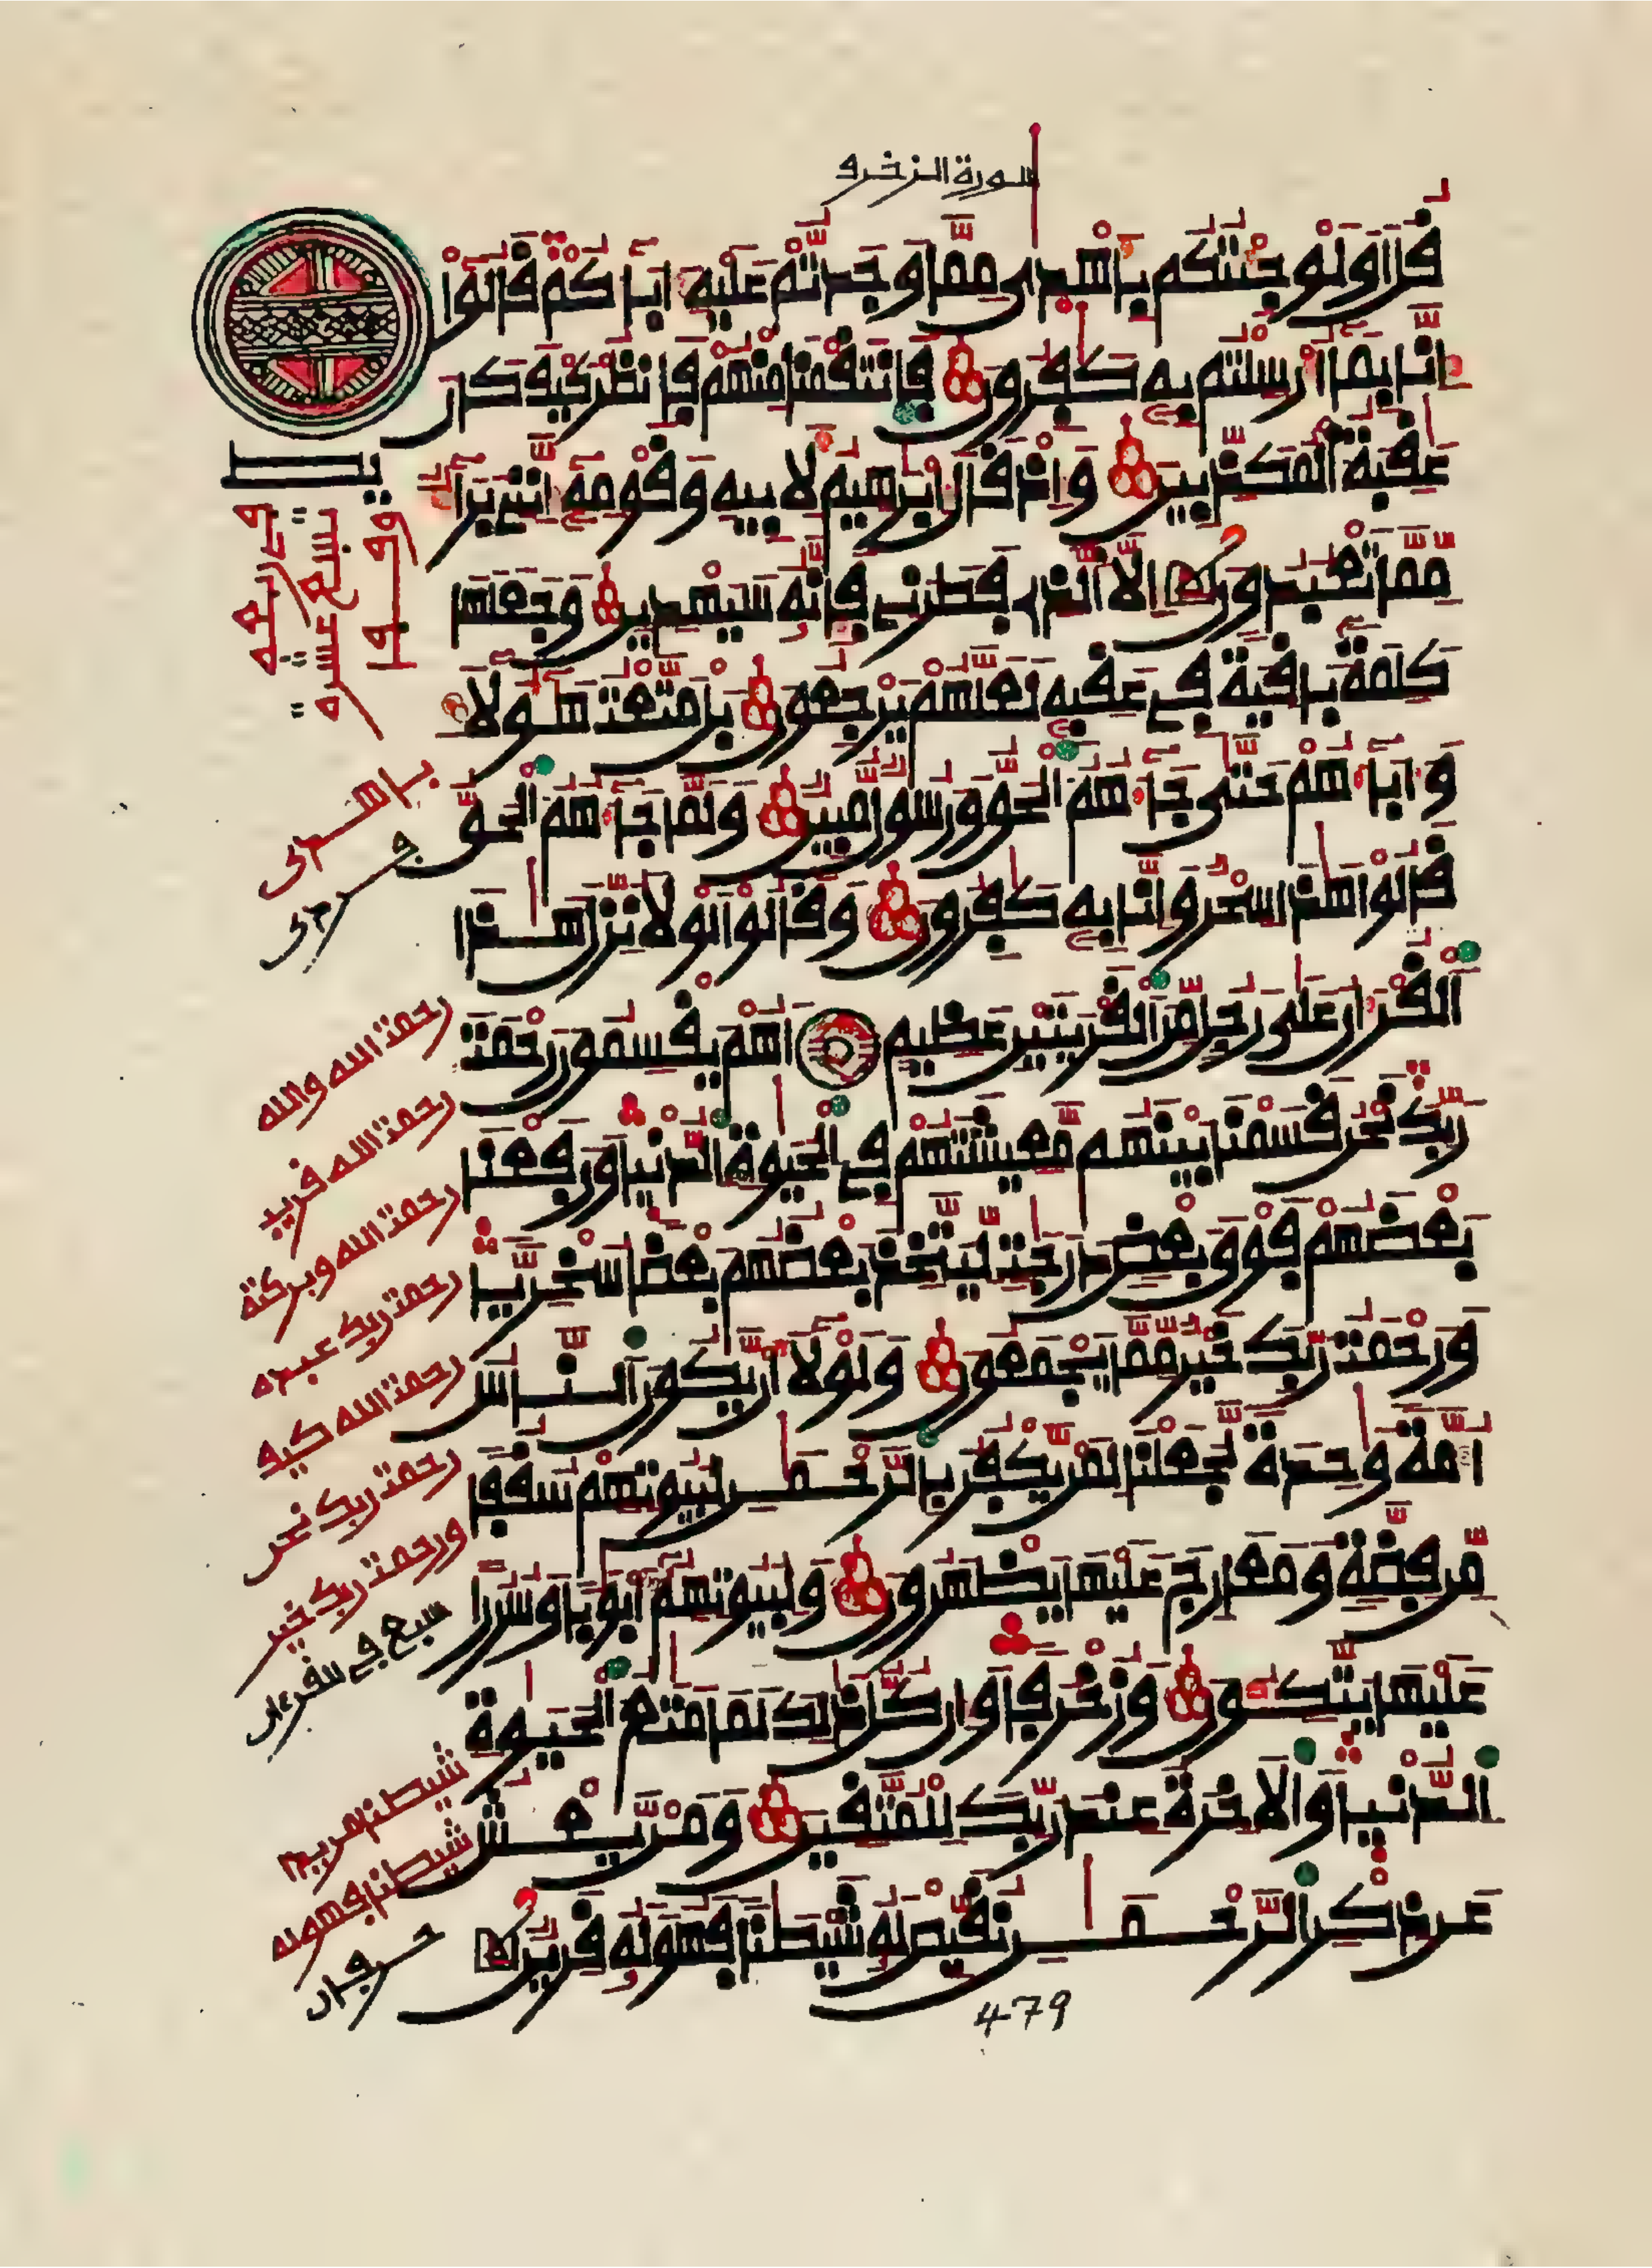 سورة الزخرف
قل اولو جئتكم باهدى مما وجدتم عليه ءاباءكم قالوا
انا بما ارسلتم به كفرون فانتقمنا منهم فانظر كيف كان
عقبة المكذبين واذ قال ابرهيم لابيه وقومه انني براء
مما تعبدون الا الذي فطرني فانه سيهدين وجعلها
كلمة باقية في عقبه لعلهم يرجعون بل متعت هؤلاء
وءاباءهم حتى جاءهم الحق ورسول مبين ولما جاءهم الحق
قالوا هذا سحر وانا به كفرون وقالوا لولا نزل هذا
القرءان على رجل من القريتين عظيم اهم يقسمون رحمت
ربك نحن قسمنا بينهم معيشتهم في الحيوة الدنيا ورفعنا
بعضهم فوق بعض درجت ليتخذ بعضهم بعضا سخريا
ورحمت ربك خير مما يجمعون ولولا ان يكون الناس
امة وحدة لجعلنا لمن يكفر بالرحمن لبيوتهم سقفا
من فضة ومعارج عليها يظهرون ولبيوتهم ابوبا وسررا
عليها يتكئون وزخرفا وان كل ذلك لما متع الحيوة
الدنيا والاخرة عند ربك للمتقين ومن يعش
عن ذكر الرحمن نقيض له شيطنا فهو له قرين
479
تسع عشرة
باهدى
رحمت الله والله
رحمت الله قريب
رحمت الله وبركته
رحمت ربك عبده
رحمت الله كيف
رحمت ربك نحن
ورحمت ربك خير
سبع في القرءان
شيطنا مريدا
شيطنا فهو له
حرفان